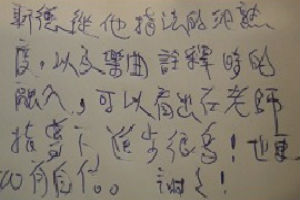 新德,從他指法的純熟
度,以及樂曲詮釋時的
融入,可以看出在老師
指導下進步很多!也更
有自信。 謝謝!